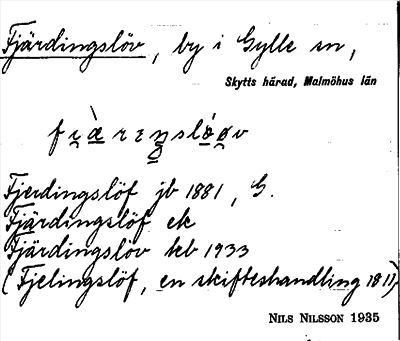 Fjärdingslöv, by i Gylle sn,
Skytts härad, Malmöhus län
Fjerdingslöf jb 1881, G.
Fjärdingslöf ek
Fjärdingslöv tcb 1933
(Fjelingslöf, en skifteshandling 1811),
NILS NILSSON 1935